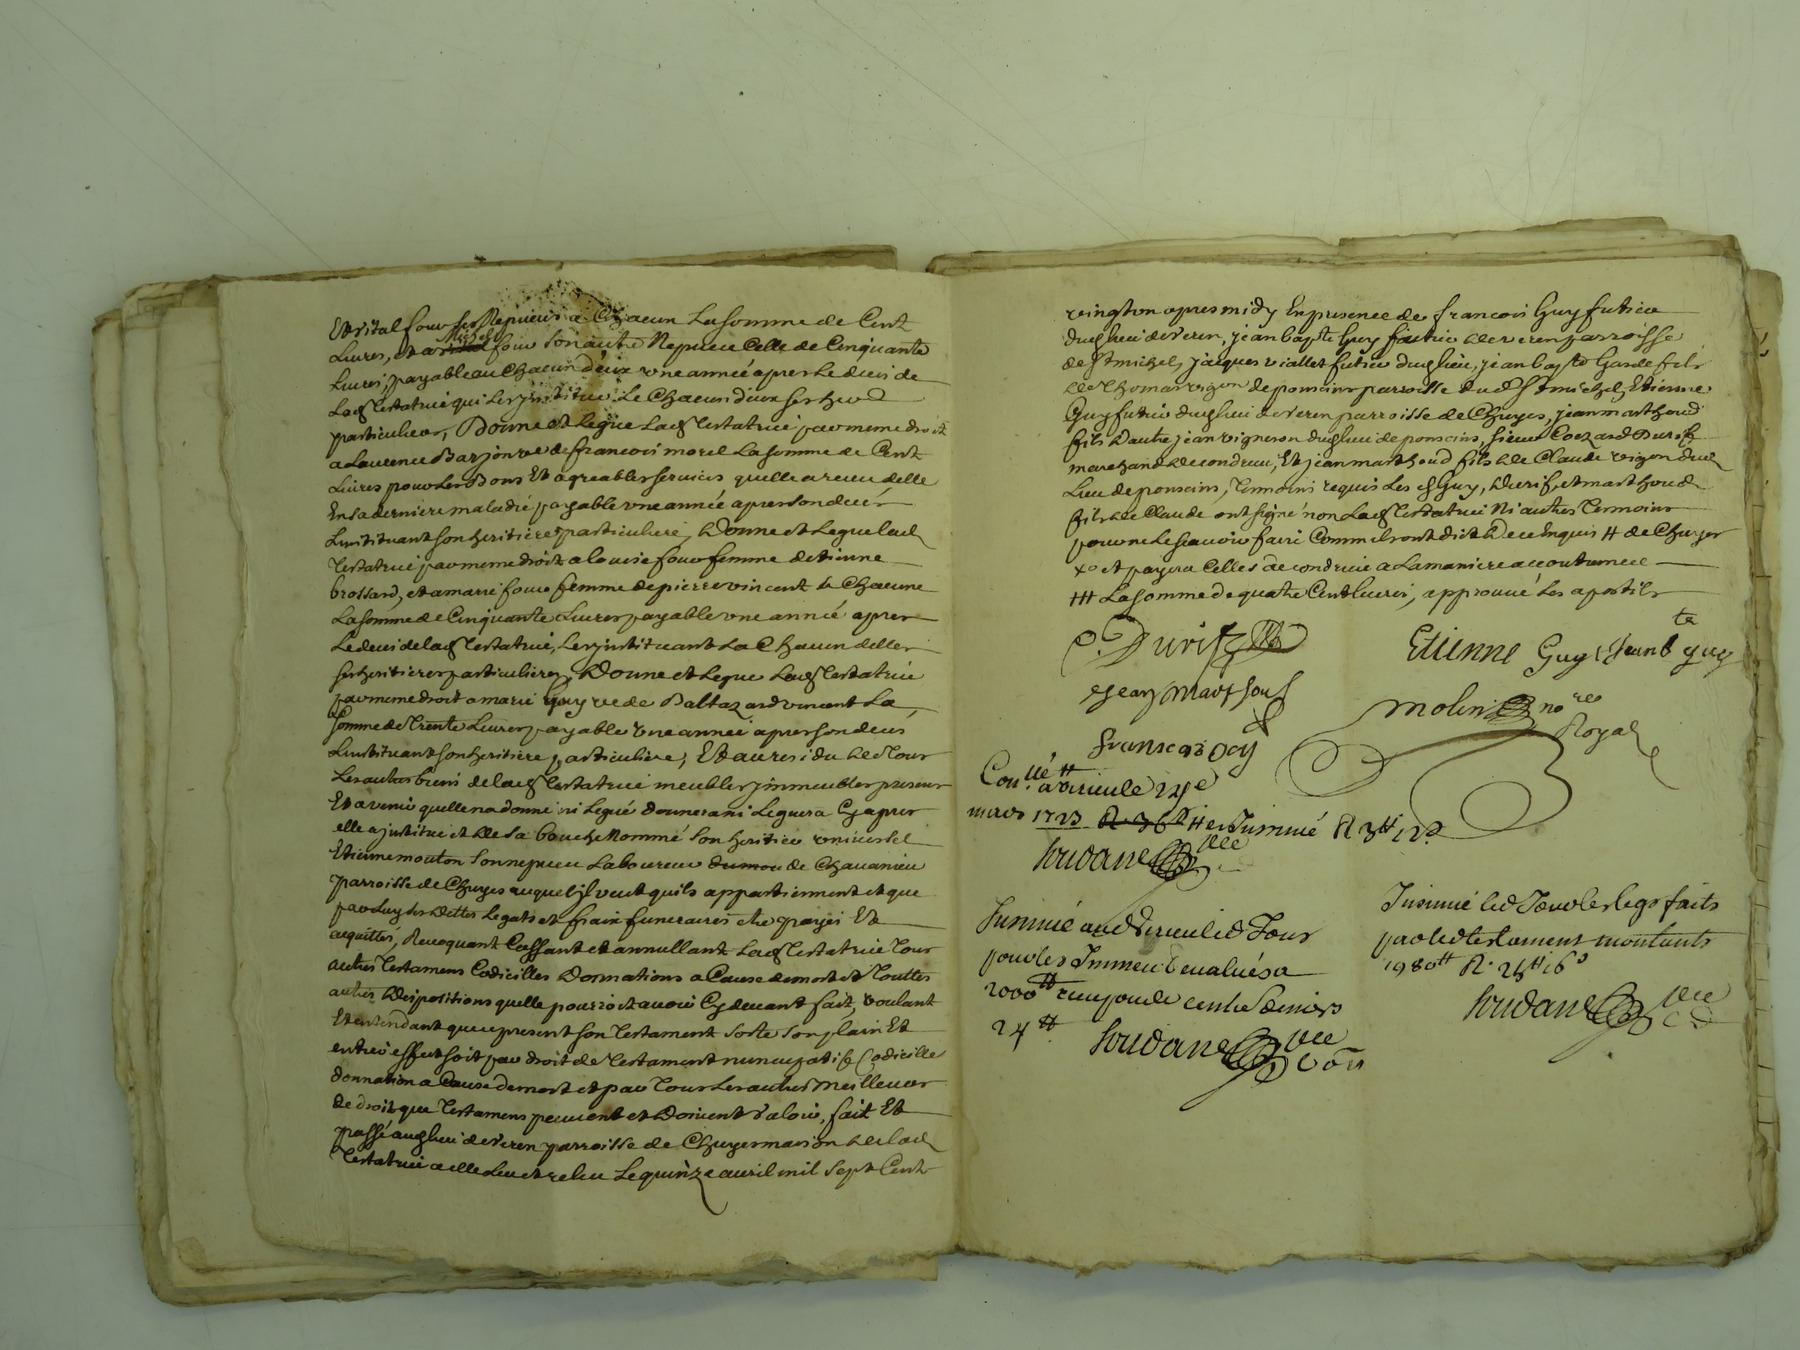 Et vital four ses Nepveux a Chacun La somme de Cent
Livres, et a michel four son autre Nepveu Celle de Cinquante
Livres, payable au Chacun d'eux une année apres Le deces de
Lad testatrice qui Les institue Le Chacun d'eux ses herd
particuliers, Donne et Legue Lad testatrice par meme droit
a Laurence Barjon ve de francois morel La somme de Cent
Livres pour Les Bons Et agreables services quelle a receu delle
En sa derniere maladie payable une année apres son decés
L'instituant son heritiere particuliere, Donne et Legue lad
testatrice par meme droit a louise four femme d'etienne
brossard, et a marie four femme de pierre vincent a Chacune
La somme de Cinquante Livres payable une année apres
Le deces de lad testatrice, Les instituant La Chacun delles
ses heritieres particulieres, Donne et Legue Lad testatrice
par meme droit a marie Guy ve de Baltazard vincent La
somme de Trente Livres payable une année apres son deces
L'instituant son heritiere particuliere, Et au residu de Tous
Les autres biens de lad testatrice meubles immeubles presents
Et a venir quelle na donné ni Legué donnera ni Leguera Cy apres
elle a institué et de sa bouche Nommé son heritier universel
Etienne mouton son nepveu Laboureur de Chavanieu
parroisse de Chuyes auquel il veut quils appartiennent et que
par Luy ses dettes Legats et frais funeraires etre payés Et
acquittés, Revoquant Cassant et annullant Lad testatrice Tous
autres Testamens Codicilles Donnations a Cause de mort et Touttes
autres Dispositions quelle pourroit avoir Cy devant fait, voulant
Et entendant que ce present son Testament sorte son plain Et
entier effect soit par droit de Testament nuncupatif Codicille
donnation a Cause de mort et par Tous Les autres meilleurs
de droit que Testamens peuvent et Doivent valoir, fait Et
passé aud lieu de veren parroisse de Chuyes maison de lad
Testatrice a elle Leu et releu Le quinze avril mil sept Cent
vingt on apres midy En presence de francois Guy futier
dud lieu de veren, jean bapte Guy futier de veren parroisse
de St michel, jacques viallet futier dud lieu, jean bapte Garde fils
de Thomas vigon de ponsoins parroisse dud St michel, Etienne
Guy futier dud lieu de veren parroisse de Chuyes, jean marthoud
fils d'autre jean vigneron dud lieu de ponsoins, sieur Durif
marchand de condrieu, Et jean marthoud fils de Claude vigon dud
Lieu de ponsoins, Temoins requis Les Guy, durif, et marthoud
fils de Claude ont signé non Lad Testatrice Ni autres Temoins
pour ne Le scavoir faire Comm ils ont dit De ce Enquis # de Chuyes
xo et payera Celles de condrieu a La maniere accoutumée
### La somme de quatre Cent Livres, approuvé Les apostils
Durif
Etienne Guy Jean bte guy
Jean marthoud
molin nore
Royal
francois Gay
Conllé a virieu le 24e
mars 1723 et Insinué R 3tt 12s
Soudane
Insinué aud virieu led Jour
pour les Immeub evalués a
2000tt receu pour le centie Deniers
24tt
Soudane
Insinué led Jour les legs faits
par led testament montants
1980tt R. 24tt 16s
Soudane